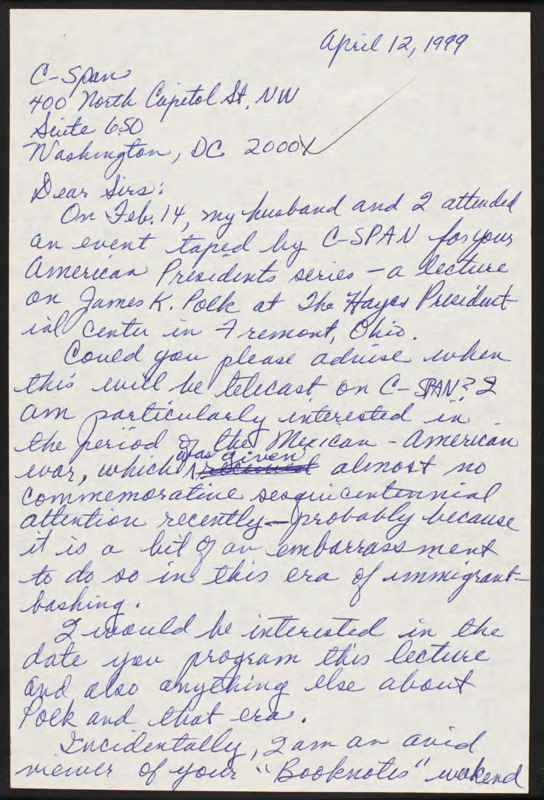 April 12, 1999
C-Span
400 North Capitol St, NW
Suite 650
Washington, DC 20001
Dear Sirs:
On Feb. 14, my husband and I attended
an event taped by C-SPAN for your
American Presidents series - a lecture
on James K. Polk at The Hayes President-
ial Center in Fremont, Ohio.
Could you please advise when
this will be telecast on C-SPAN? I
am particularly interested in
the period of the Mexican - American
war, which was given received almost no
commemorative sesquicentennial
attention recently - probably because
it is a bit of an embarrassment
to do so in this era of immigrant-
bashing.
I would be interested in the
date you program this lecture
and also anything else about
Polk and that era.
Incidentally, I am an avid
viewer of your "Booknotes" weekend